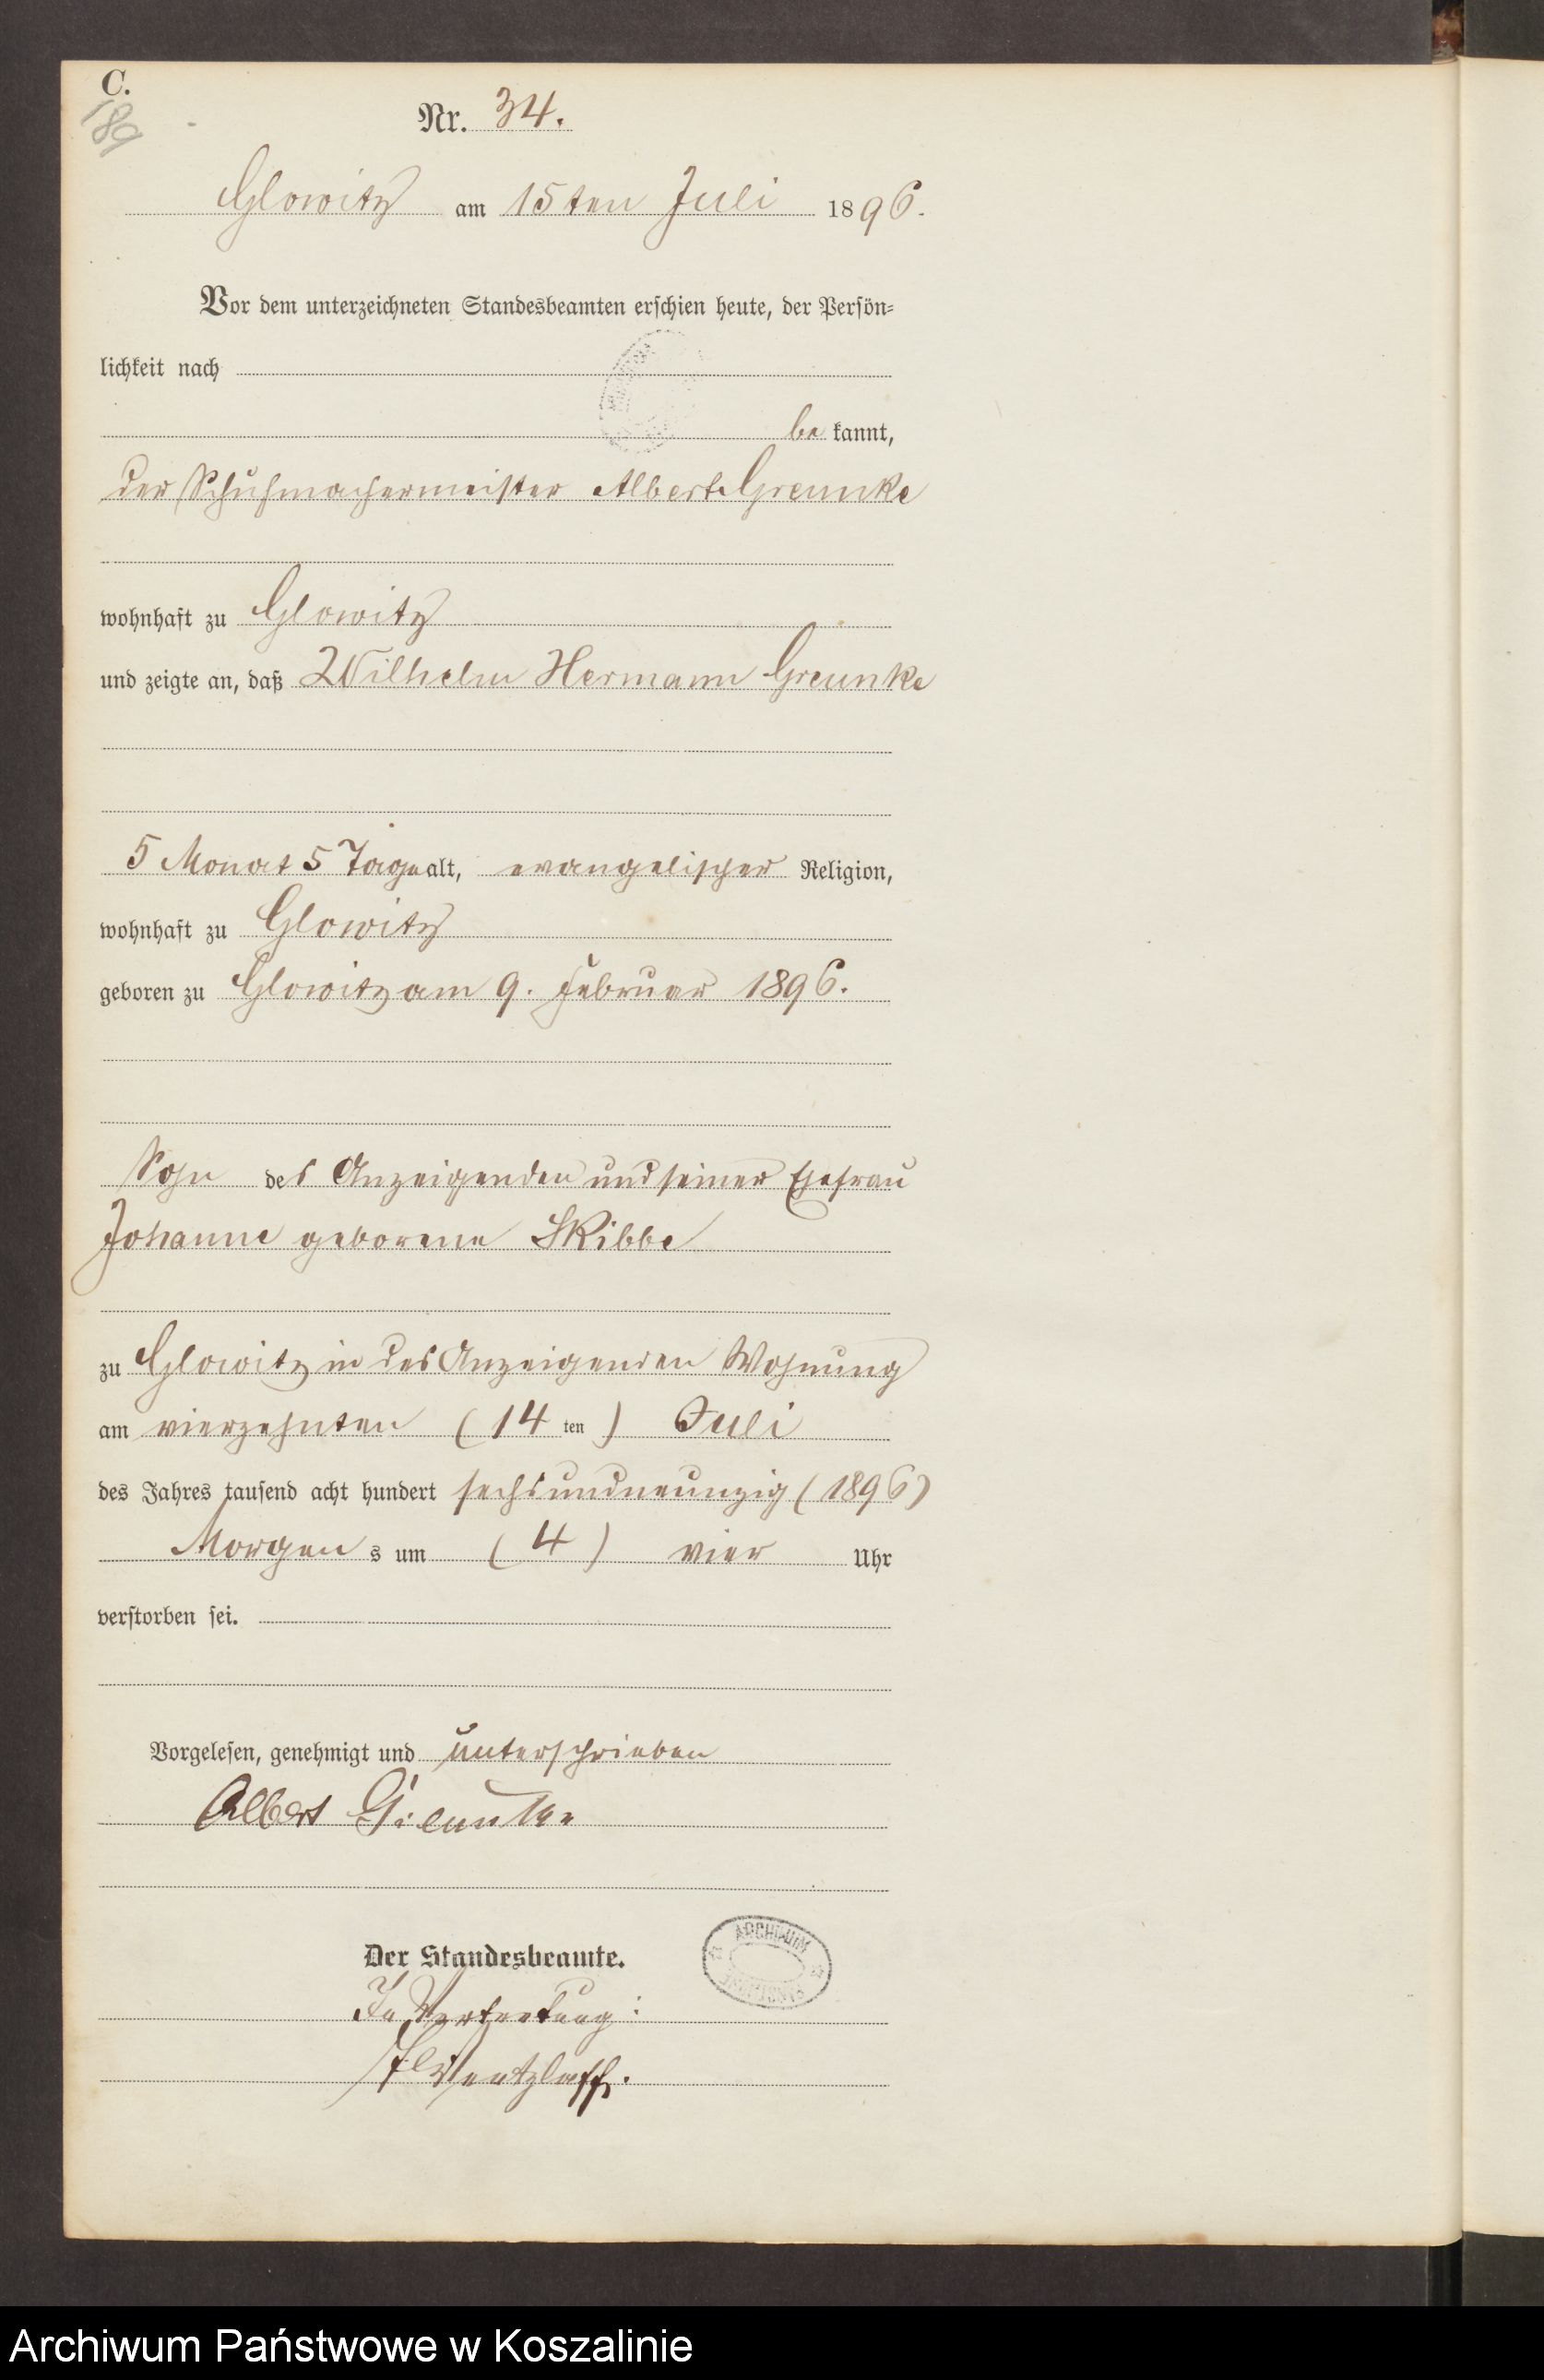 C.
189
Nr. 34.
Glowitz am 15ten Juli 1896.
Vor dem unterzeichneten Standesbeamten erschien heute, der Persön-
lichkeit nach
be kannt,
der Schuhmachermeister Albert Greunke
wohnhaft zu Glowitz
und zeigte an, daß Wilhelm Hermann Greunke
5 Monat 5 Tage alt, evangelischer Religion,
wohnhaft zu Glowitz
geboren zu Glowitz am 9. Februar 1896.
Sohn des Anzeigenden und seiner Ehefrau
Johanne geborene Skibbe
zu Glowitz in des Anzeigenden Wohnung
am vierzehnten (14 ten) Juli
des Jahres tausend acht hundert sechsundneunzig (1896)
Morgen s um (4) vier Uhr
verstorben sei.
Vorgelesen, genehmigt und unterschrieben
Albert Greunke
Der Standesbeamte.
In Vertretung:
ARCHIWUM
Archiwum Państwowe w Koszalinie